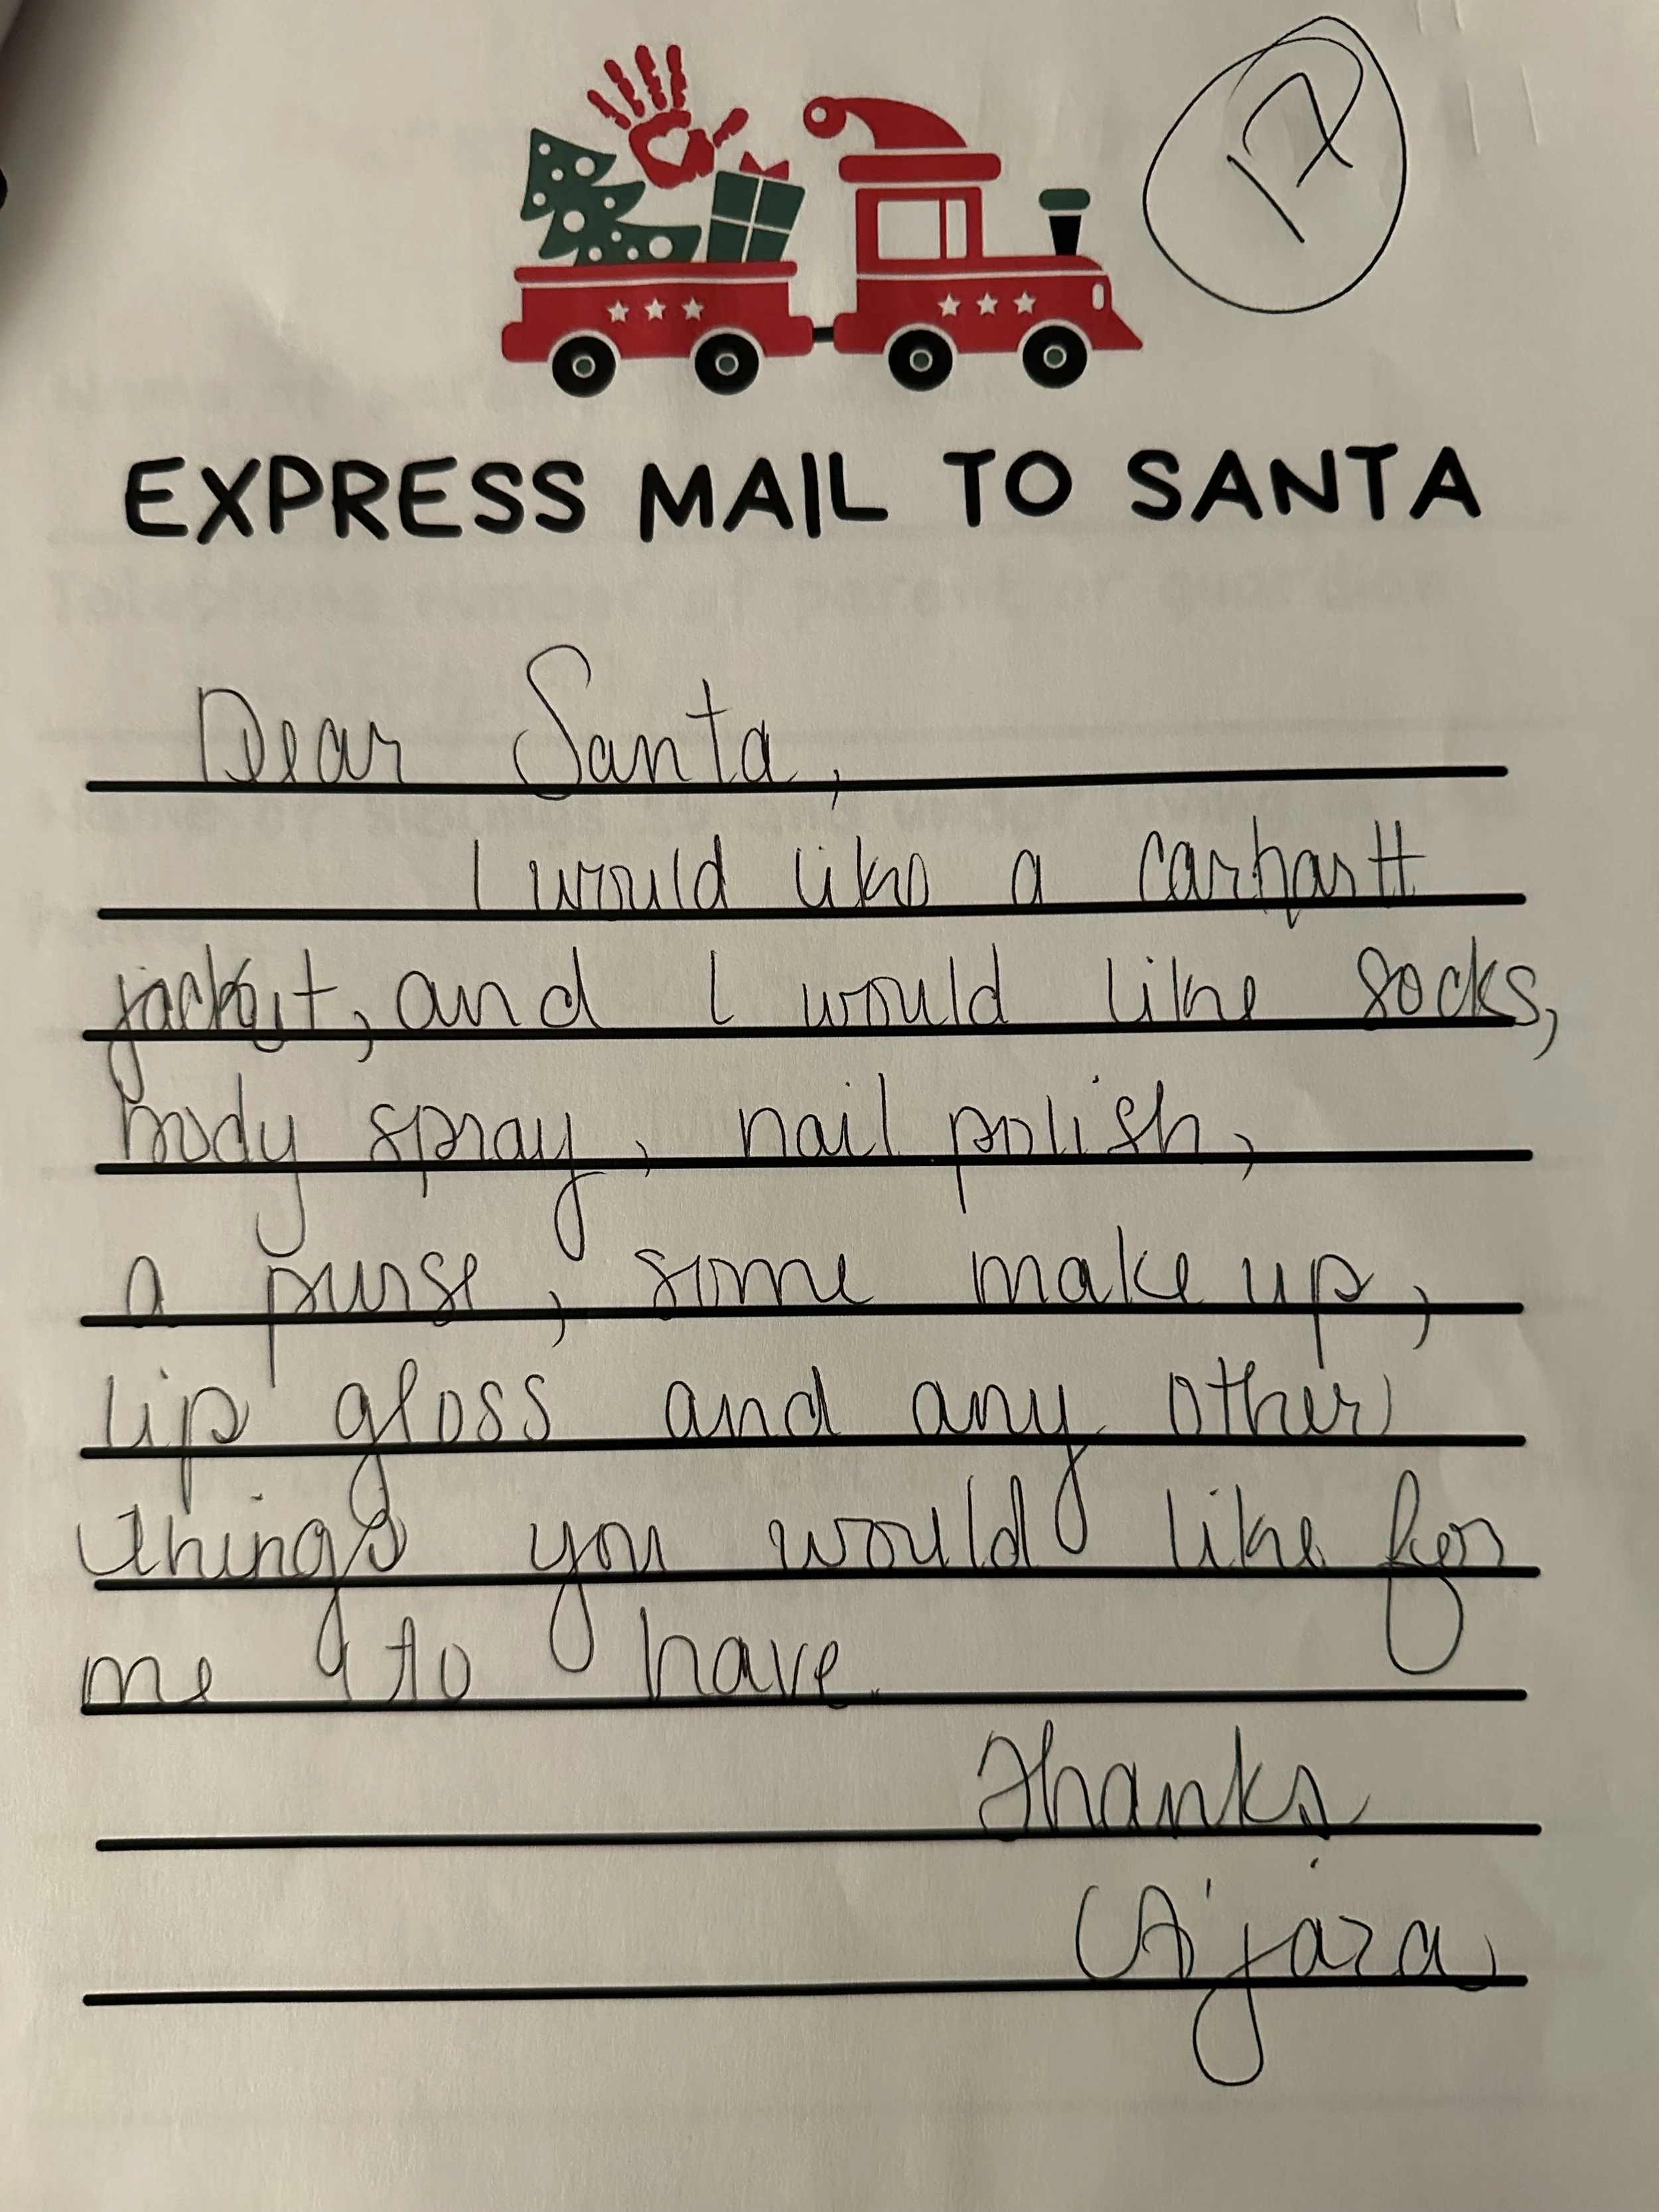 12
EXPRESS MAIL TO SANTA
Telephone number of parent or guardian
Dear Santa,
I would like a carhartt
jacket, and I would like socks,
body spray, nail polish,
a purse, some make up,
lip gloss and any other
things you would like for
me to have.
Thanks
A'jaza